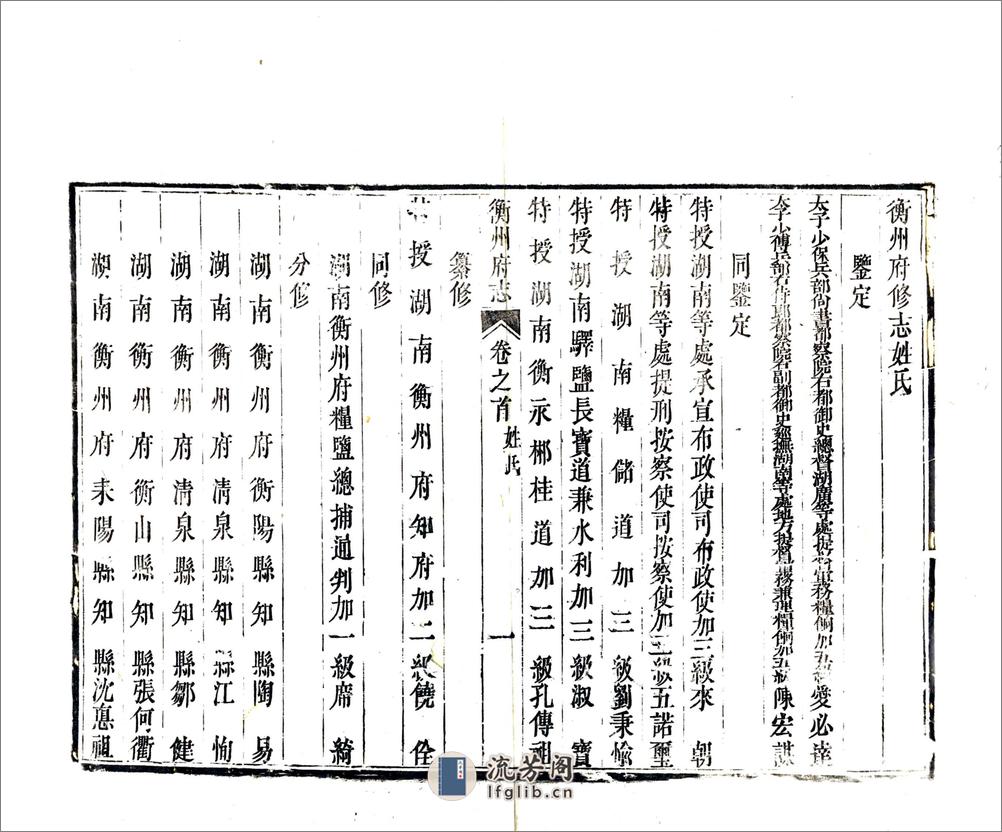 衡州府修志姓氏
鑒定
太子少保兵部尚書都察院右都御史總督湖廣等處地方提督軍務兼理糧餉加五級愛必達
太子少傅兵部右侍郎都察院右副都御史巡撫湖南等處地方提督軍務兼理糧餉加五級陳宏謀
同鑒定
特授湖南等處承宣布政使司布政使加三級來朝
特授湖南等處提刑按察使司按察使加二級五諾璽
特授湖南糧儲道加三級劉秉愉
特授湖南驛鹽長寶道兼水利加三級淑寶
特授湖南衡永郴桂道加三級孔傳祖
衡州府志 卷之首 姓氏 一
纂修
特授湖南衡州府知府加二級饒佺
同修
湖南衡州府糧鹽總捕通判加一級席綺
分修
湖南衡州府衡陽縣知縣陶易
湖南衡州府清泉縣知縣江恂
湖南衡州府清泉縣知縣鄒健
湖南衡州府衡山縣知縣張何衢
湖南衡州府耒陽縣知縣沈惪祖
流芳阁
lfglib.cn